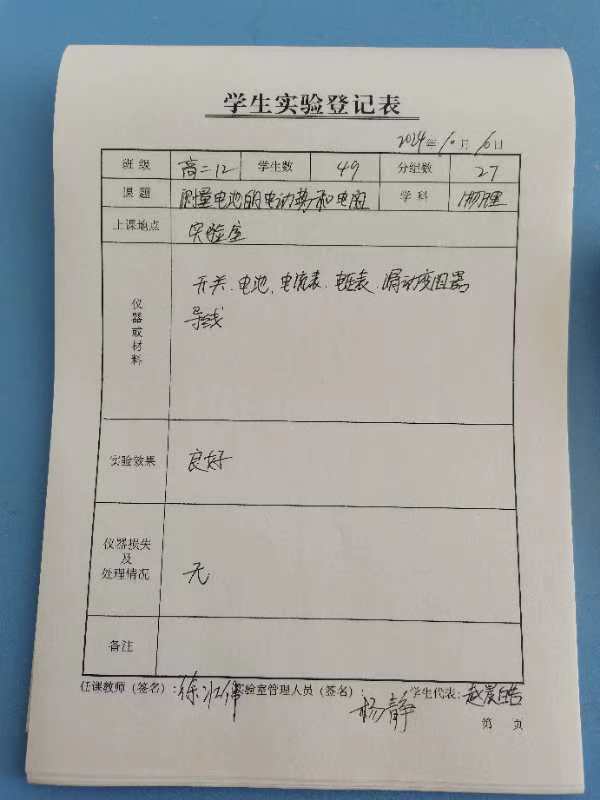 学生实验登记表
2024年10月16日
班级 高二12 学生数 49 分组数 27
课题 测量电池的电动势和电阻 学科 物理
上课地点 实验室
仪器或材料 开关、电池、电流表、电压表、滑动变阻器
导线
实验效果 良好
仪器损失
及
处理情况 无
备注
任课教师(签名): 实验室管理人员(签名): 杨静 学生代表:
第 页